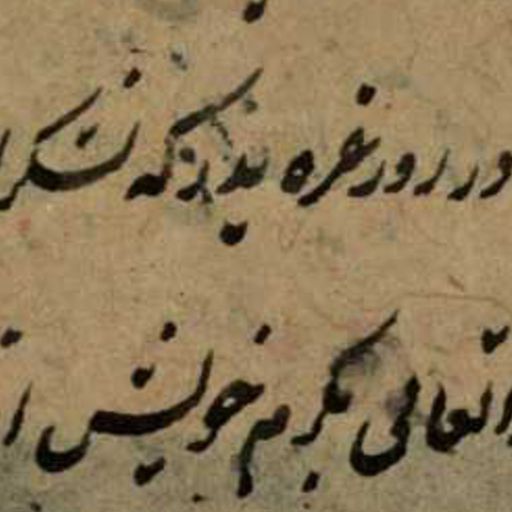 ور روز غره بدر که شکر
تعالی بکرم خویش